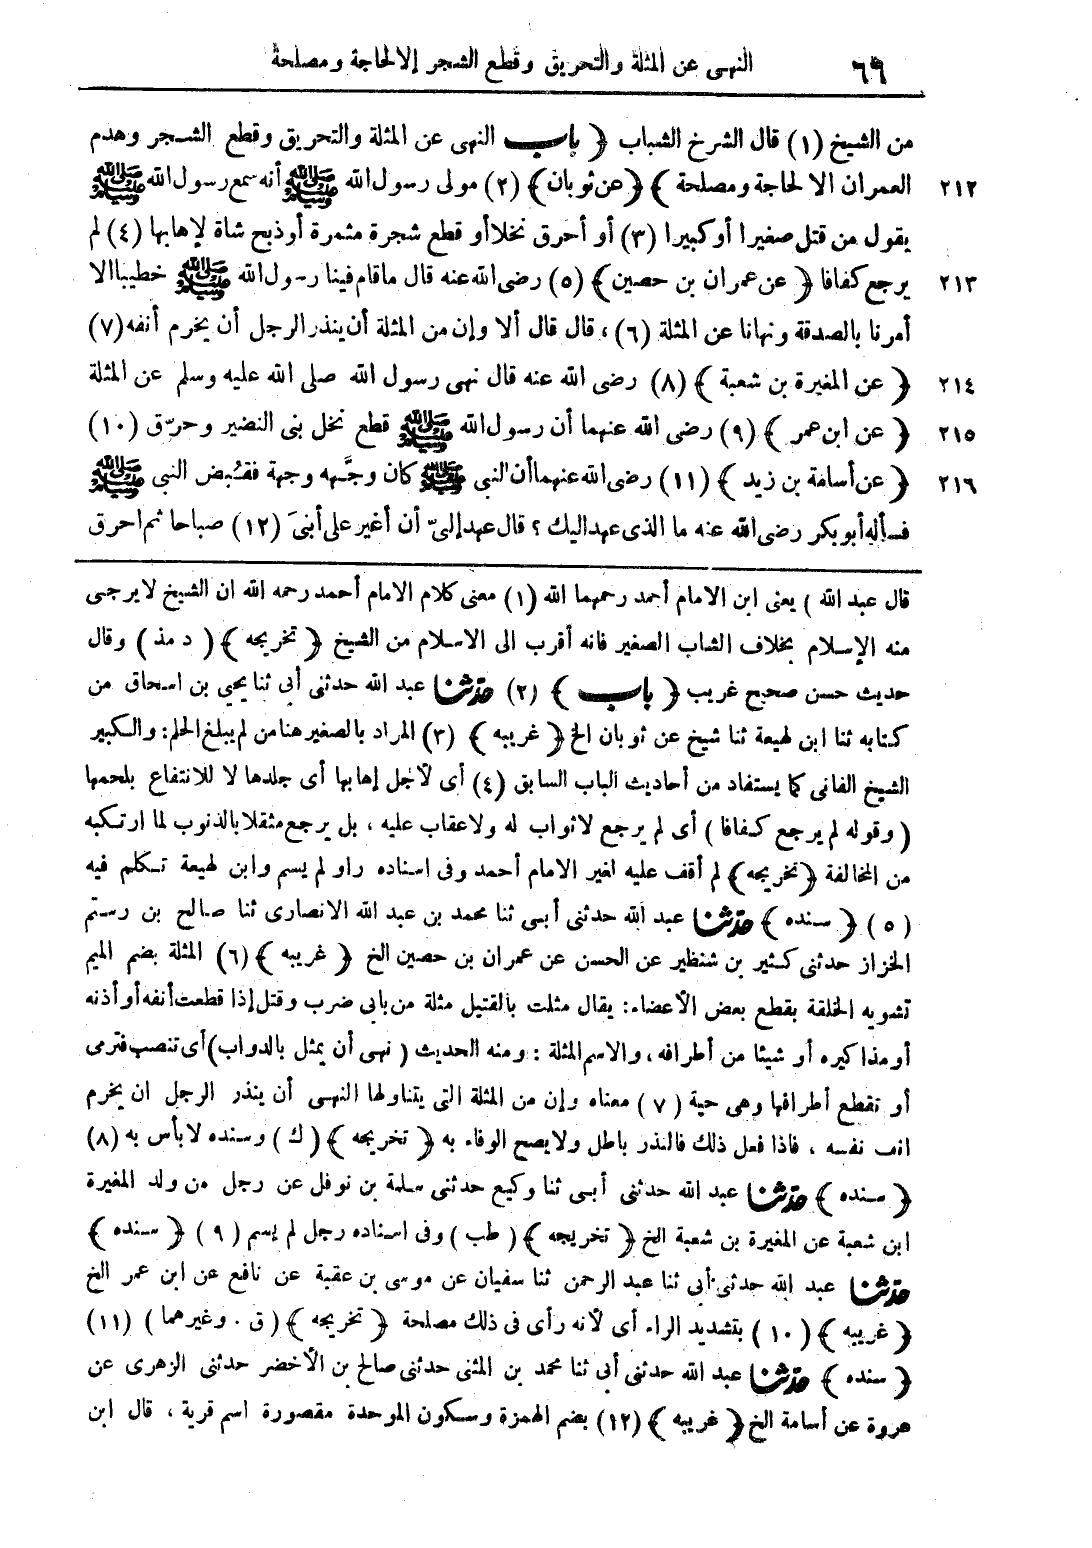 ٦٩ النهى عن المثلة والتحريق وقطع الشجر إلا لحاجة ومصلحة
من الشيخ (١) قال الشرخ الشباب ﴿ باب النهى عن المثلة والتحريق وقطع الشجر وهدم
٢١٢ العمران الا لحاجة ومصلحة ﴾ ﴿عن ثوبان﴾ (٢) مولى رسول الله ﷺ أنه سمع رسول الله ﷺ
يقول من قتل صغيرا أو كبيرا (٣) أو أحرق نخلا أو قطع شجرة مثمرة أو ذبح شاة لإهابها (٤) لم
٢١٣ يرجع كفافا ﴿ عن عمران بن حصين﴾ (٥) رضى الله عنه قال ما قام فينا رسول الله ﷺ خطيبا الا
أمرنا بالصدقة ونهانا عن المثلة (٦)، قال قال ألا وإن من المثلة أن ينذر الرجل أن يخرم أنفه (٧)
٢١٤ ﴿ عن المغيرة بن شعبة ﴾ (٨) رضى الله عنه قال نهى رسول الله صلى الله عليه وسلم عن المثلة
٢١٥ ﴿ عن ابن عمر ﴾ (٩) رضى الله عنهما أن رسول الله ﷺ قطع نخل بنى النضير وحرّق (١٠)
٢١٦ ﴿ عن أسامة بن زيد ﴾ (١١) رضى الله عنهما أن النبى ﷺ كان وجَّهه وجهة فقُبض النبى ﷺ
فسأله أبو بكر رضى الله عنه ما الذى عهد اليك ؟ قال عهد إلىّ أن أغير على أبنىَ (١٢) صباحا ثم احرق
قال عبد الله ) يعنى ابن الامام أحمد رحمهما الله (١) معنى كلام الامام أحمد رحمه الله ان الشيخ لا يرجى
منه الإسلام بخلاف الشاب الصغير فانه أقرب الى الاسلام من الشيخ ﴿ تخريجه ﴾ ( د مذ ) وقال
حديث حسن صحيح غريب ﴿ باب ﴾ (٢) حدثنا عبد الله حدثنى أبى ثنا يحيى بن اسحاق من
كتابه ثنا ابن لهيعة ثنا شيخ عن ثوبان الخ ﴿ غريبه ﴾ (٣) المراد بالصغير هنا من لم يبلغ الحلم: والكبير
الشيخ الفانى كما يستفاد من أحاديث الباب السابق (٤) أى لأجل إهابها أى جلدها لا للانتفاع بلحمها
( وقوله لم يرجع كفافا ) أى لم يرجع لا ثواب له ولا عقاب عليه ، بل يرجع مثقلا بالذنوب لما ارتكبه
من المخالفة ﴿تخريجه﴾ لم أقف عليه لغير الامام أحمد وفى اسناده راو لم يسم وابن لهيعة تكلم فيه
(٥) ﴿ سنده ﴾ حدثنا عبد الله حدثنى أبى ثنا محمد بن عبد الله الانصارى ثنا صالح بن رستم
الخزاز حدثنى كثير بن شنظير عن الحسن عن عمران بن حصين الخ ﴿ غريبه ﴾ (٦) المثلة بضم الميم
تشويه الخلقة بقطع بعض الأعضاء: يقال مثلت بالقتيل مثلة من بابى ضرب وقتل إذا قطعت أنفه أو أذنه
أو مذاكيره أو شيئا من أطرافه، والاسم المثلة : ومنه الحديث ( نهى أن يمثل بالدواب) أى تنصب فترمى
أو تقطع أطرافها وهى حية (٧) معناه وإن من المثلة التى يتناولها النهى أن ينذر الرجل ان يخرم
انف نفسه ، فاذا فعل ذلك فالنذر باطل ولا يصح الوفاء به ﴿ تخريجه ﴾ ( ك ) وسنده لا بأس به (٨)
﴿ سنده ﴾ حدثنا عبد الله حدثنى أبى ثنا وكيع حدثنى سلمة بن نوفل عن رجل من ولد المغيرة
ابن شعبة عن المغيرة بن شعبة الخ ﴿ تخريجه ﴾ ( طب ) وفى اسناده رجل لم يسم (٩) ﴿ سنده ﴾
حدثنا عبد الله حدثنى أبى ثنا عبد الرحمن ثنا سفيان عن موسى بن عقبة عن نافع عن ابن عمر الخ
﴿ غريبه ﴾ (١٠) بتشديد الراء أى لأنه رأى فى ذلك مصلحة ﴿ تخريجه ﴾ (ق . وغيرهما ) (١١)
﴿ سنده ﴾ حدثنا عبد الله حدثنى أبى ثنا محمد بن المثنى حدثنى صالح بن الأخضر حدثنى الزهرى عن
عروة عن أسامة الخ ﴿ غريبه ﴾ (١٢) بضم الهمزة وسكون الموحدة مقصورة اسم قرية ، قال ابن